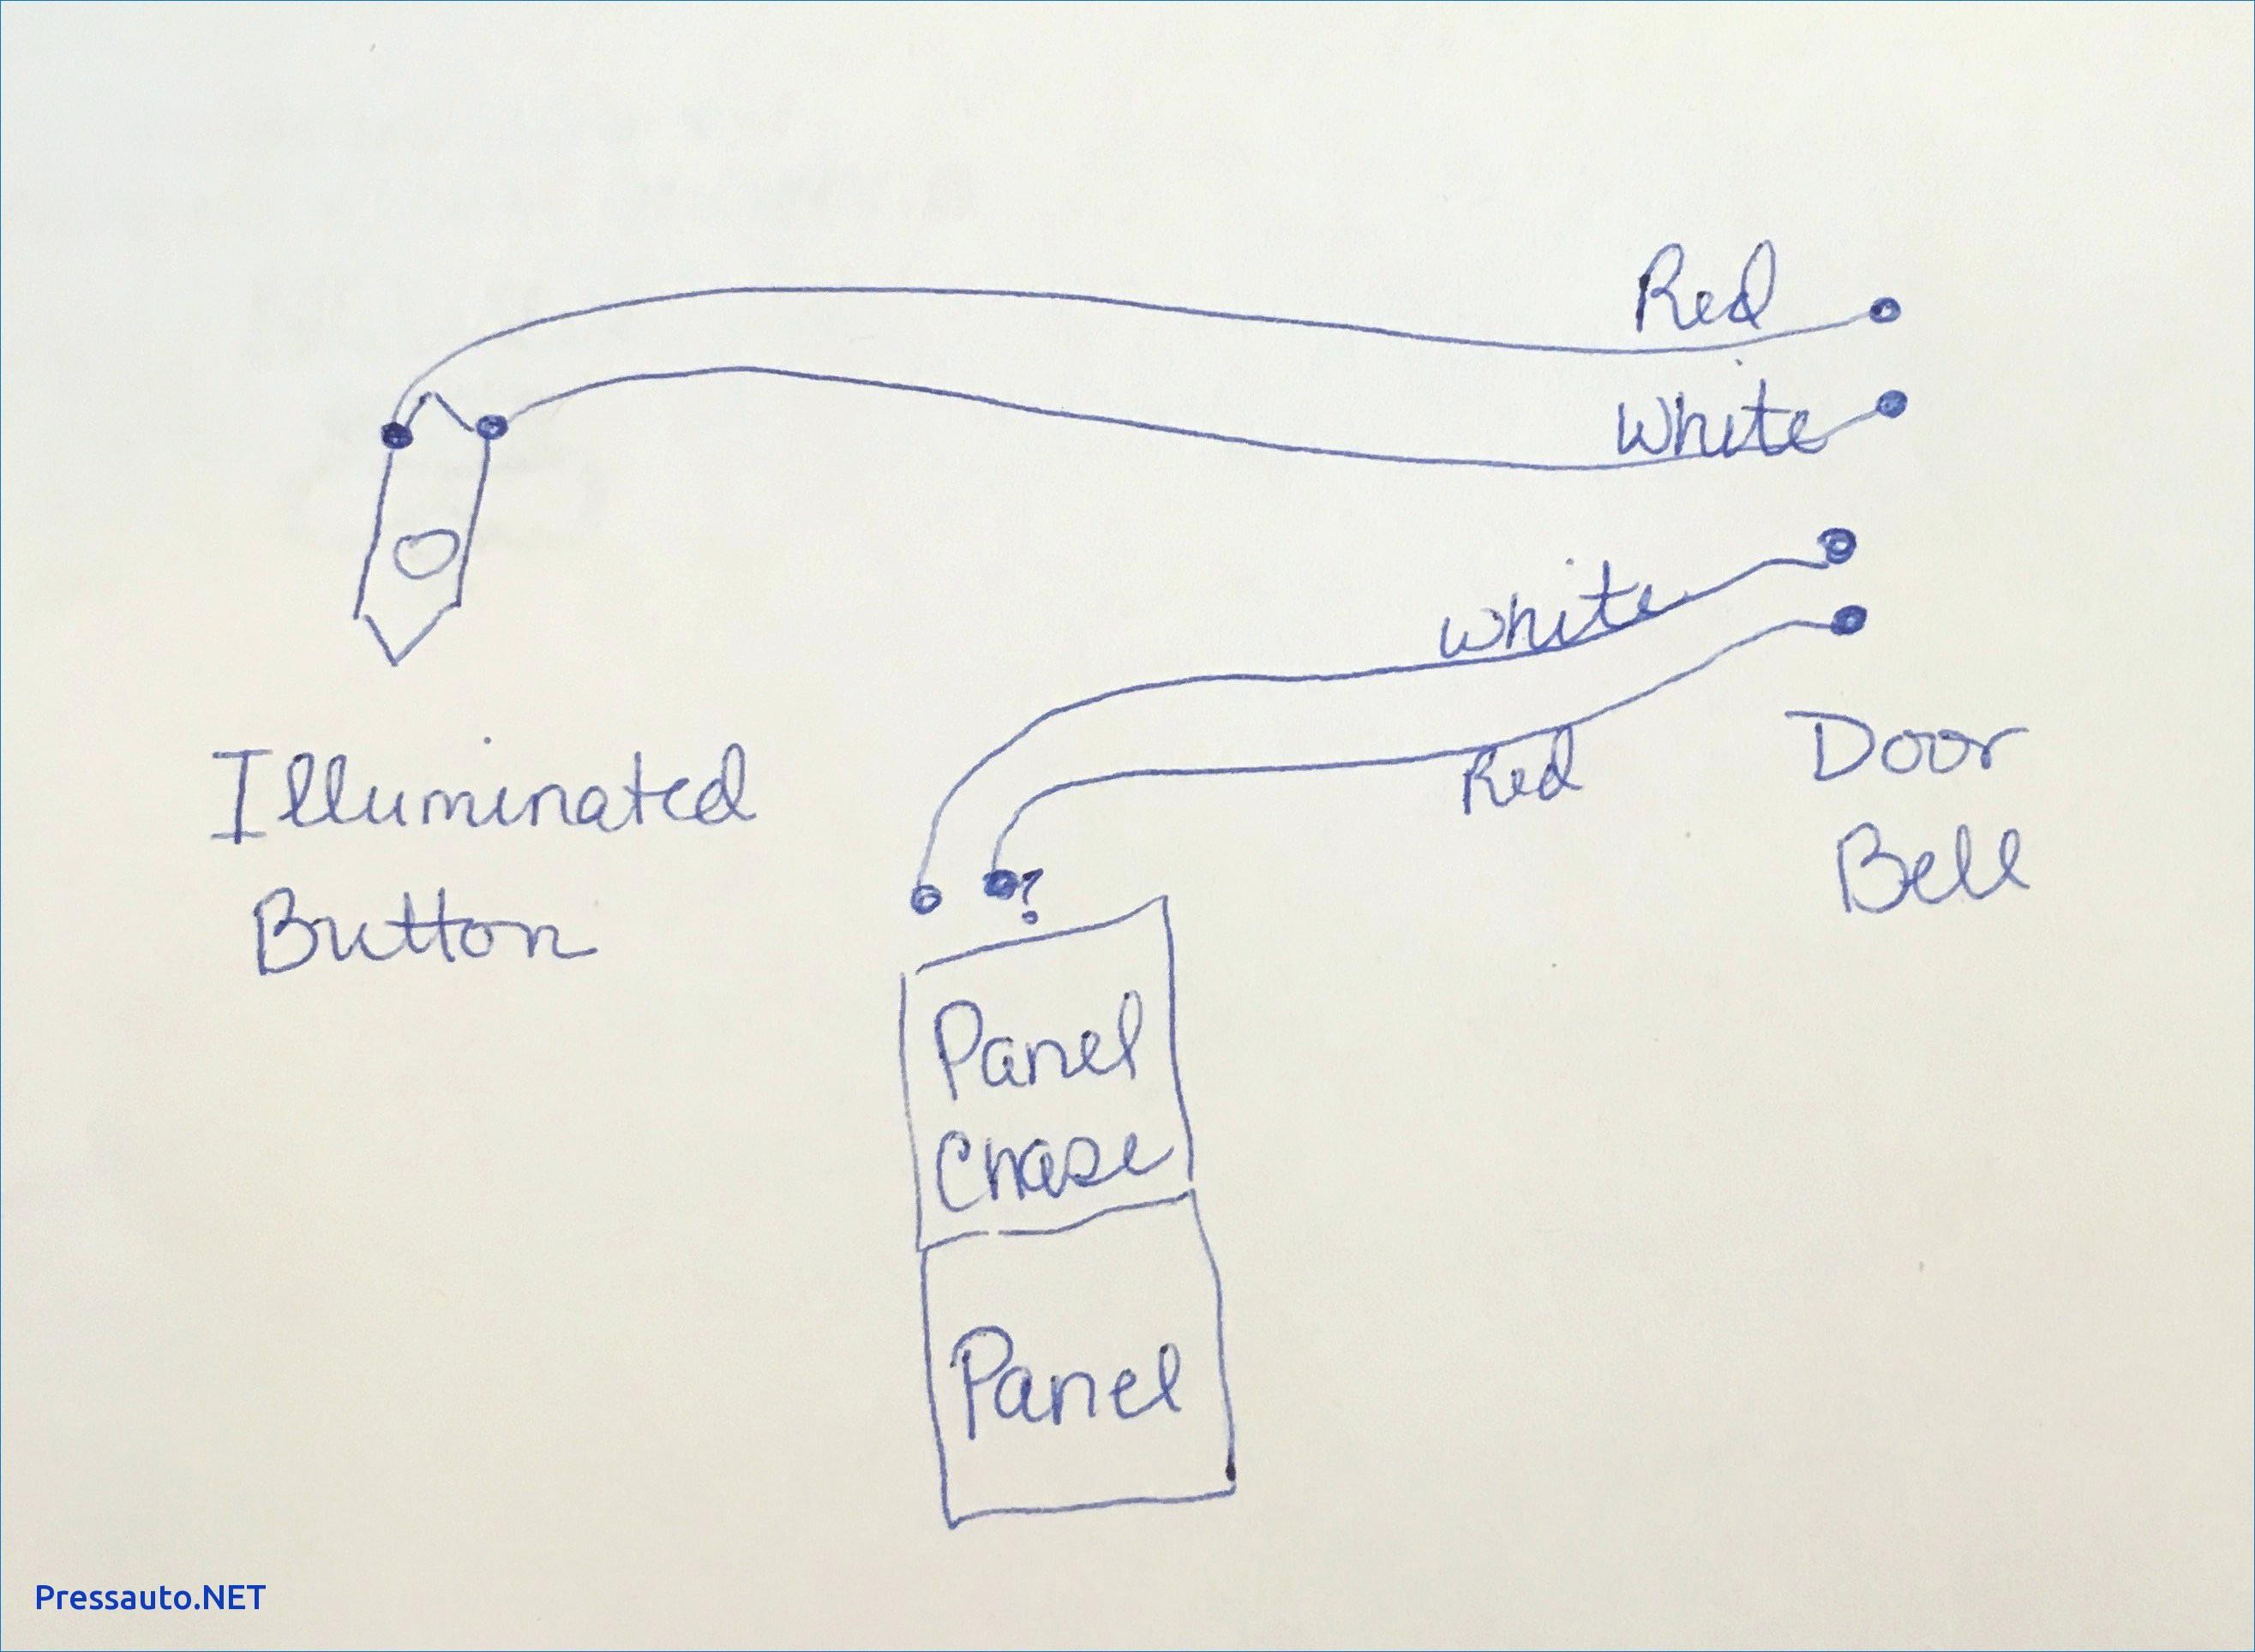 Red
White
White
Red
Door
Bell
Illuminated
Button
?
Panel
Chase
Panel
Pressauto.NET